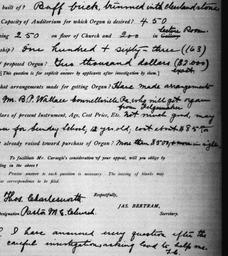 built of? Buff brick, trimmed with
Capacity of Auditorium for which Organ is desired? 450
Lecture Room
250 on floor of Church and 200 in
ship? One hundred + sixty-three (163)
f proposed Organ? Two thousand dollars ($2000)
[This question is for explicit answer by applicants after investigation by them.]
hat arrangements made for getting Organ? Have made arrangements
M. B. P. Wallace who will get organ from
lars of present Instrument, Age, Cost Price, Etc. Not much good, may
for Sunday School, 12 yr old, cost about $75
t already raised toward purchase of Organ? More than $500, + now in sight
To facilitate Mr. Carnegie's consideration of your appeal, will you please fill up
ting in the above?
Precise answer to each question is necessary. The issuing of blanks may
correspondence to be filed.
Respectfully,
Thos. Charlesworth
JAS. BERTRAM,
Designation Pastor M. E. Church Secretary.
I have answered every question after the
careful investigation, asking to help me.